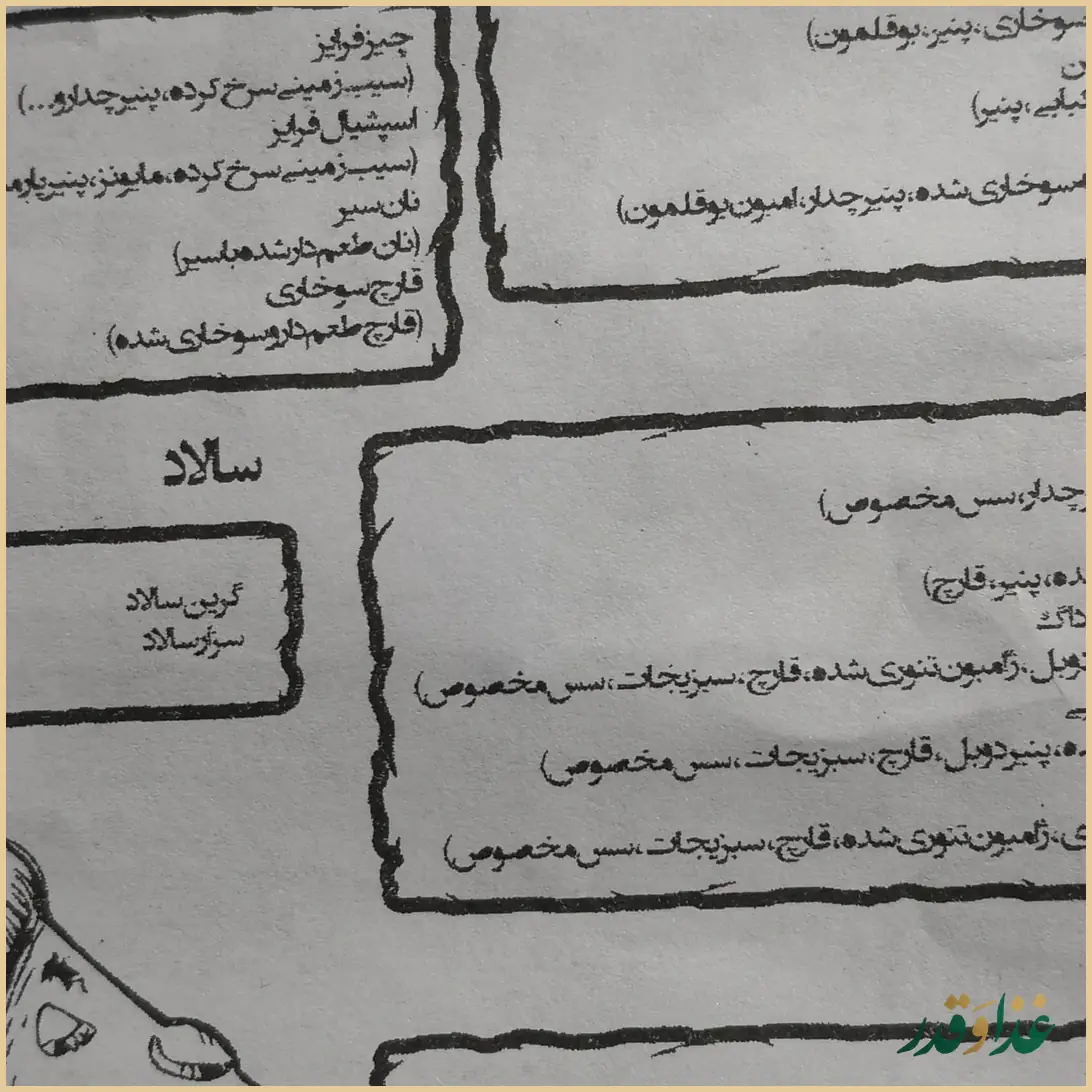 سوخاری، پنیر، بوقلمون)
پنیر)
سوخاری شده، پنیر چدار، امبون بوقلمون)
چیز فرایز
(سیب زمینی سرخ کرده، پنیر چدار و...)
اسپشیال فرایز
(سیب زمینی سرخ کرده، مایونز، پنیر
نان سیر
(نان طعم دار شده با سیر)
قارچ سوخاری
(قارچ طعم دار و سوخاری شده)
چدار، سس مخصوص)
پنیر، قارچ)
داگ
ژامبون تنوری شده، قارچ، سبزیجات، سس مخصوص)
پنیر دوبل، قارچ، سبزیجات، سس مخصوص)
ژامبون تنوری شده، قارچ، سبزیجات، سس مخصوص)
سالاد
گرین سالاد
سزار سالاد
غذا و قدر